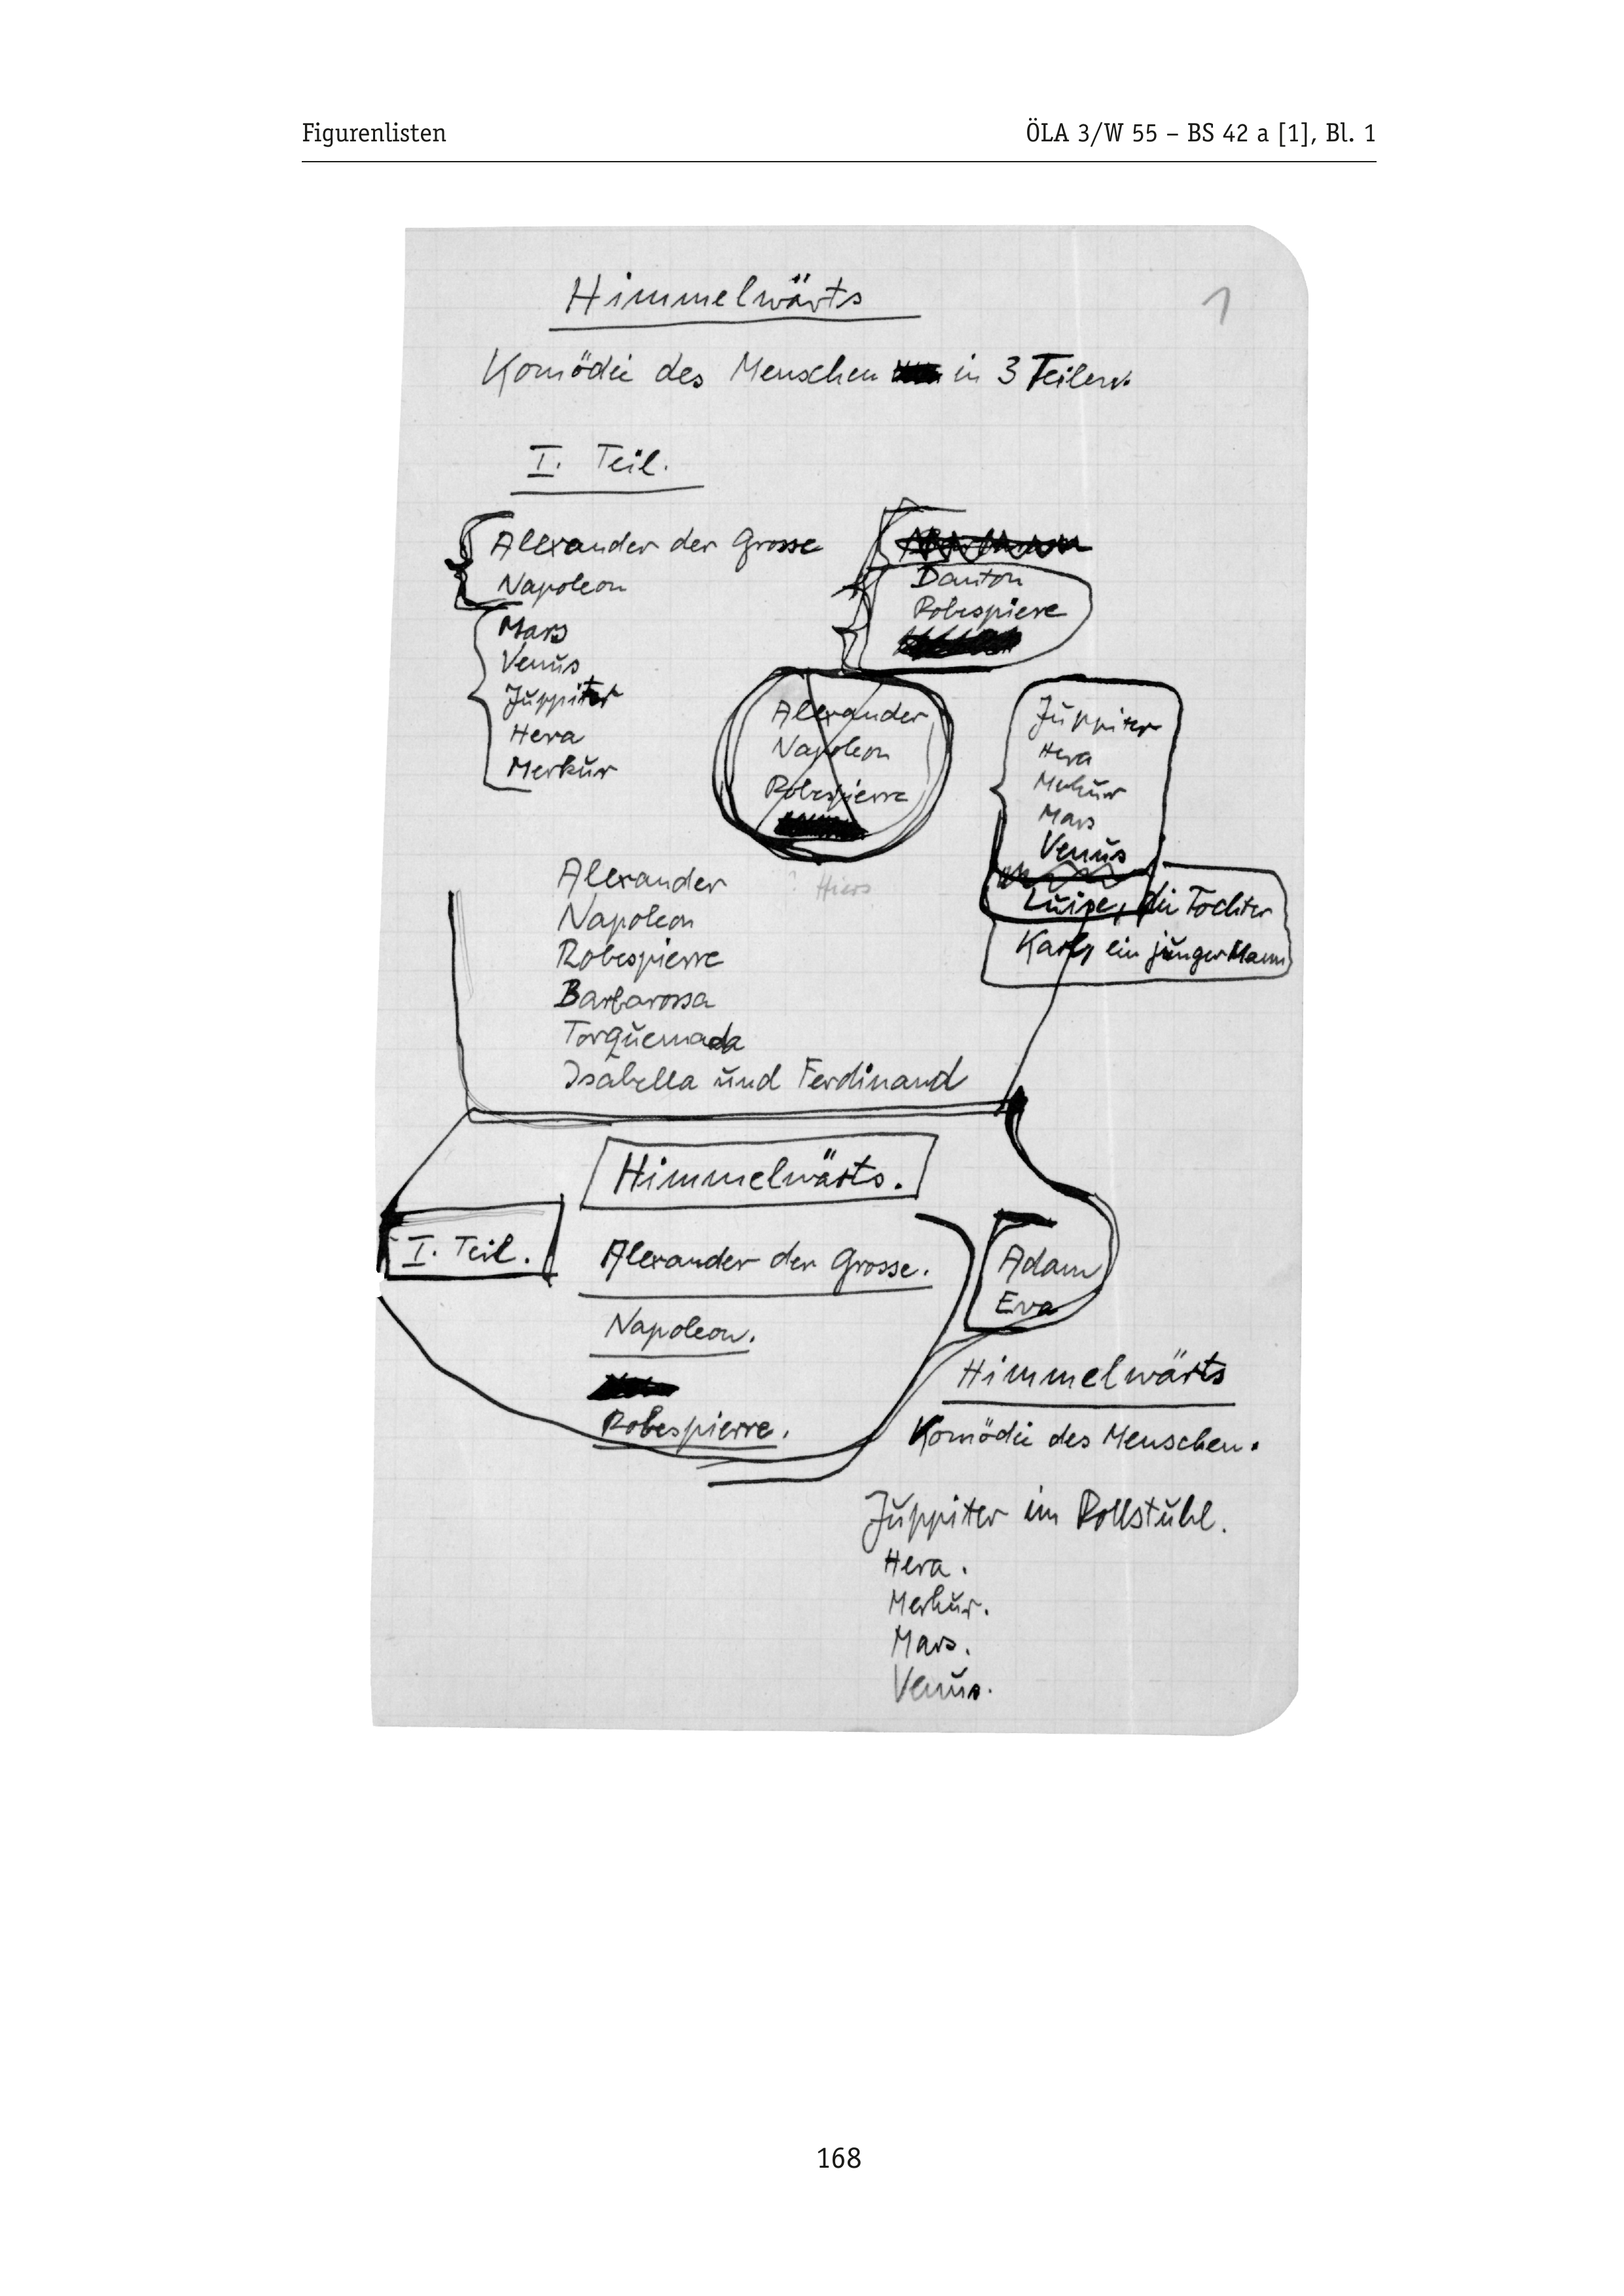 Figurenlisten
ÖLA 3/W 55 – BS 42 a [1], Bl. 1
Himmelwärts
1
Komödie des Menschen in 3 Teilen.
I. Teil.
Alexander der Grosse
Napoleon
Mars
Venus
Juppiter
Hera
Merkur
Danton
Robespiere
Alexander
Napoleon
Robespierre
Juppiter
Hera
Merkur
Mars
Venus
Luise, die Tochter
Karl, ein junger Mann
Alexander
Napoleon
Robespierre
Barbarossa
Torquemada
Isabella und Ferdinand
Himmelwärts.
I. Teil.
Alexander der Grosse.
Napoleon.
Robespierre.
Adam
Eva
Himmelwärts
Komödie des Menschen.
Juppiter im Rollstuhl.
Hera.
Merkur.
Mars.
Venus.
168